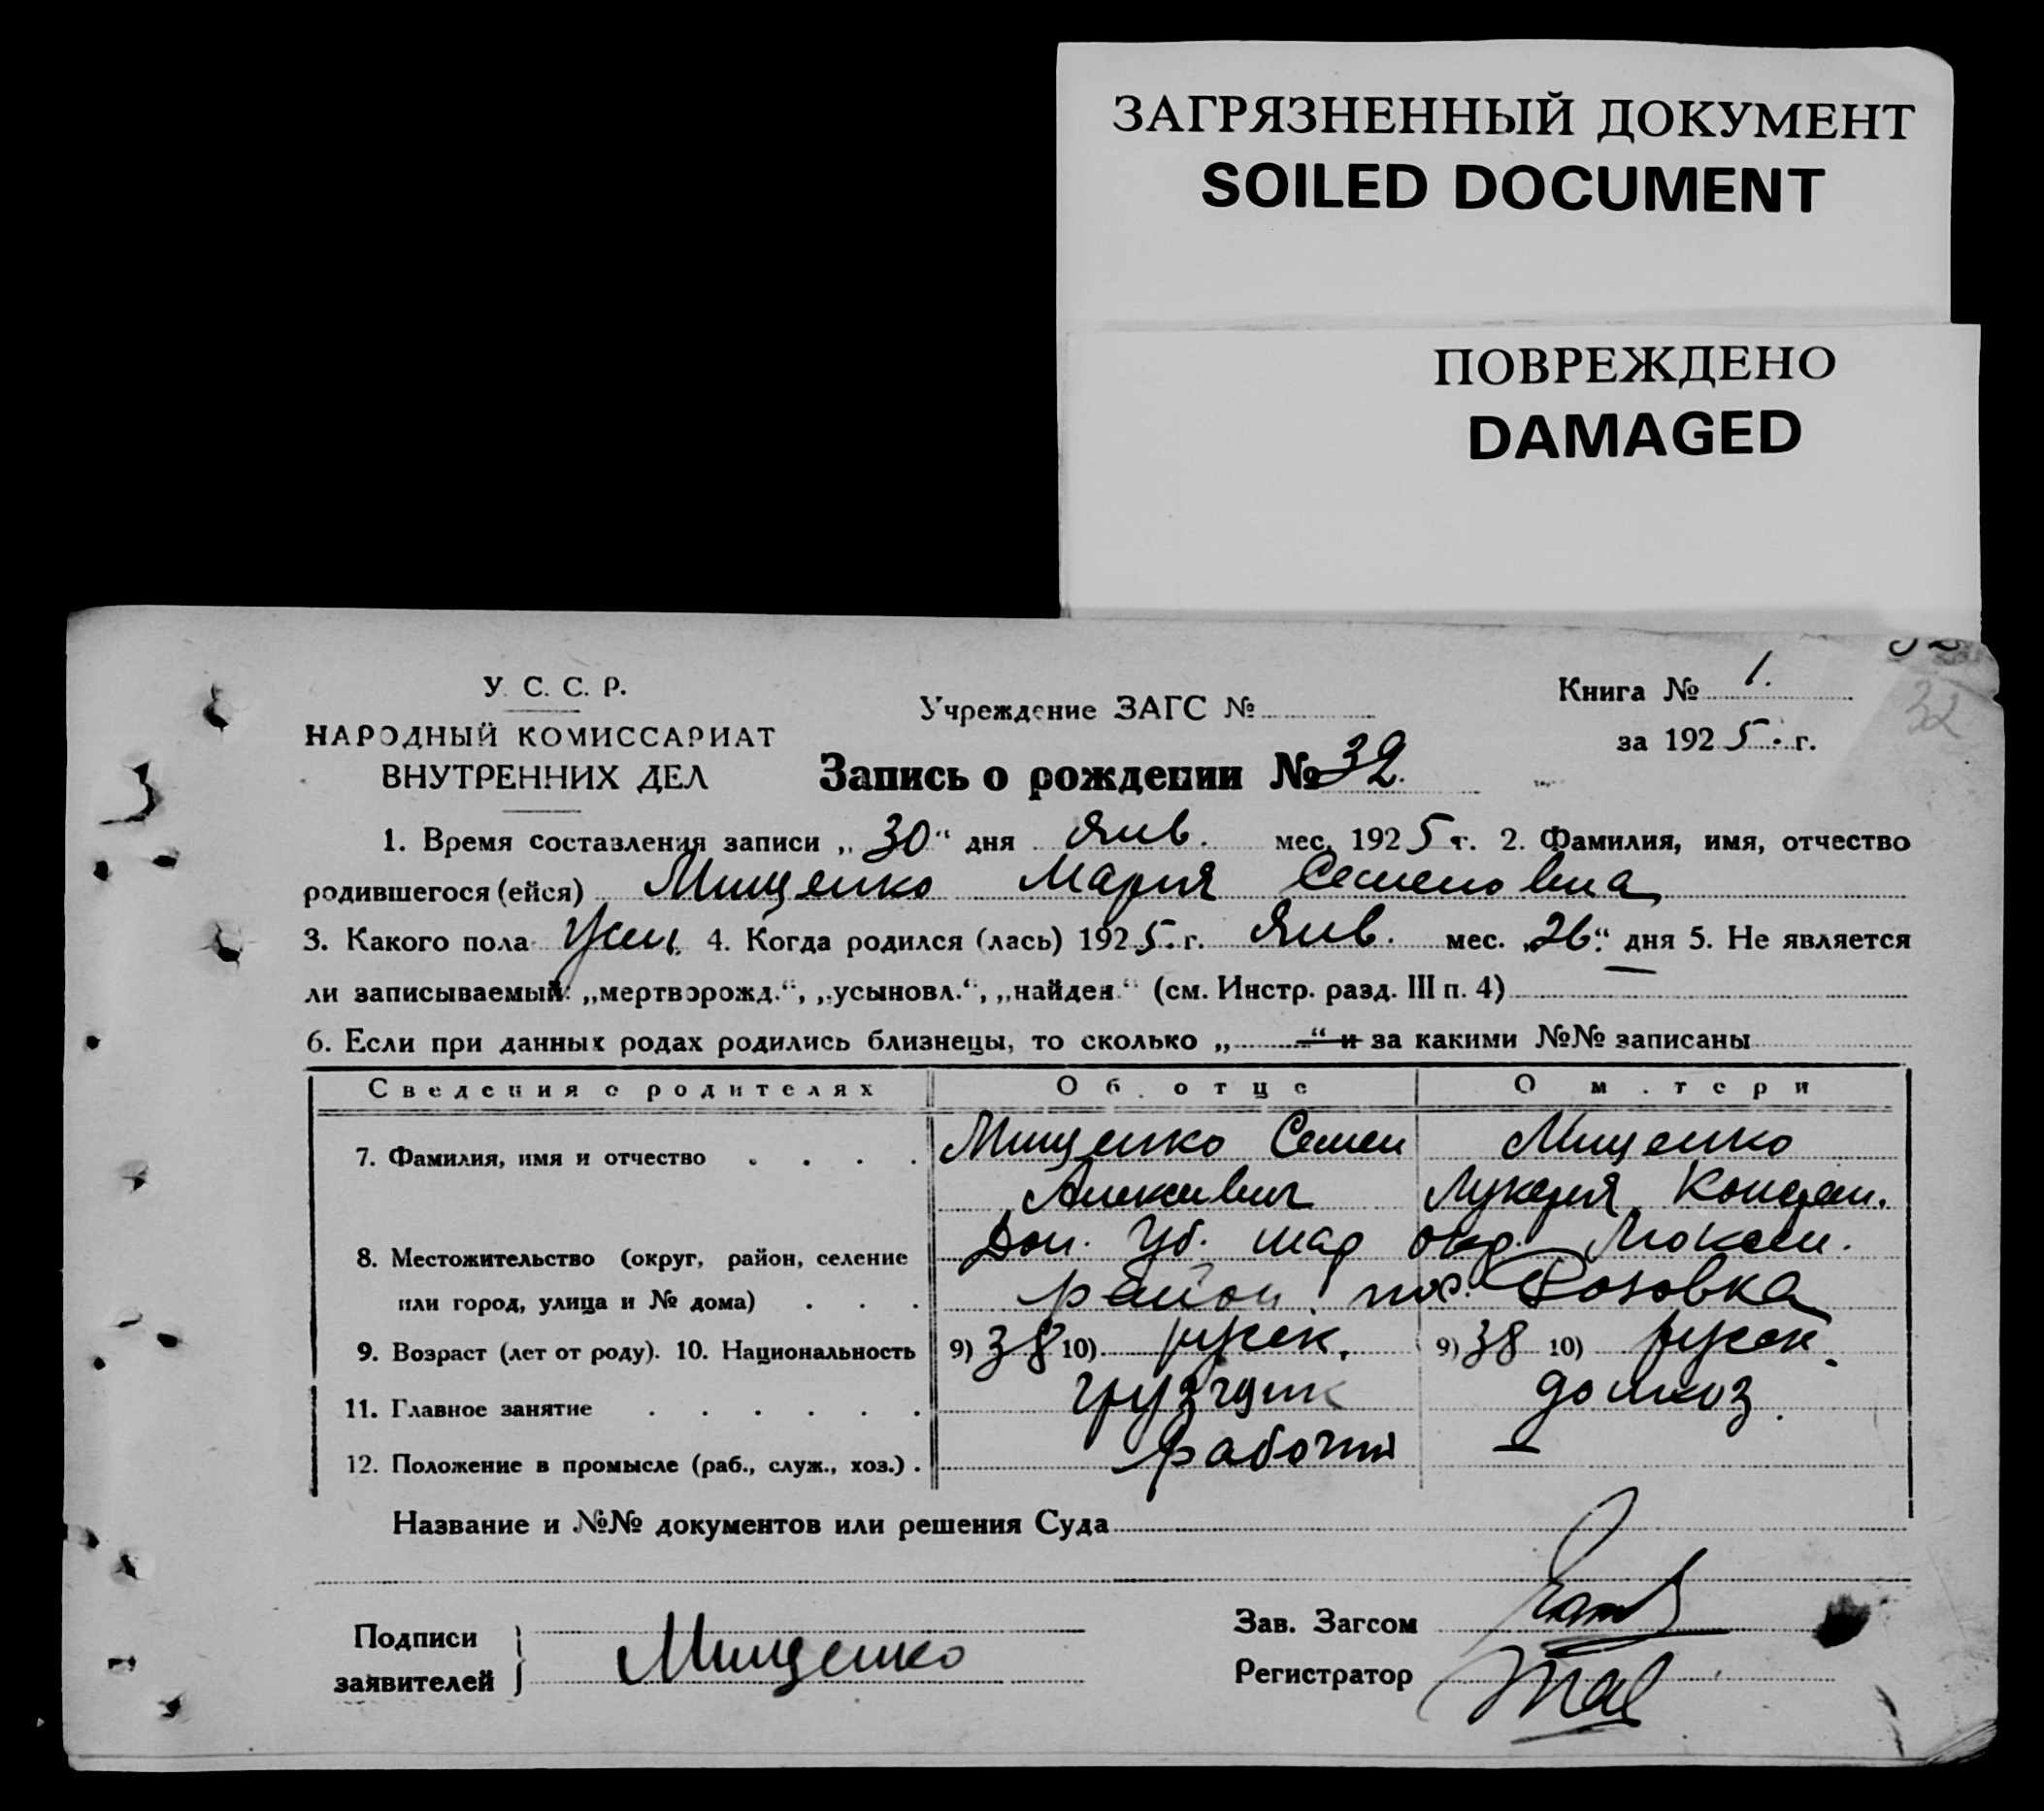 ЗАГРЯЗНЕННЫЙ ДОКУМЕНТ
SOILED DOCUMENT
ПОВРЕЖДЕНО
DAMAGED
32
У. С. С. Р.
НАРОДНЫЙ КОМИССАРИАТ
ВНУТРЕННИХ ДЕЛ
Учреждение ЗАГС №
Книга № 1.
за 1925 г.
Запись о рождении № 32.
1. Время составления записи „30“ дня Янв. мес. 1925 г. 2. Фамилия, имя, отчество
родившегося (ейся) Мищенко Мария Семеновна
3. Какого пола Жен. 4. Когда родился (лась) 1925 г. Янв. мес. „26“ дня 5. Не является
ли записываемый: „мертворожд.“, „усыновл.“, „найден.“ (см. Инстр. разд. III п. 4)
6. Если при данных родах родились близнецы, то сколько „ “ и за какими №№ записаны
Сведения о родителях Об отце О матери
7. Фамилия, имя и отчество Мищенко Семен Мищенко
Лукерия
8. Местожительство (округ, район, селение Дон. Губ. окр.
или город, улица и № дома) район. пос. Розовка
9. Возраст (лет от роду). 10. Национальность 9) 38 10) русск. 9) 38 10) русск.
11. Главное занятие грузчик домхоз.
12. Положение в промысле (раб., служ., хоз.) рабочий —
Название и №№ документов или решения Суда
Подписи
заявителей } Мищенко
Зав. Загсом
Регистратор